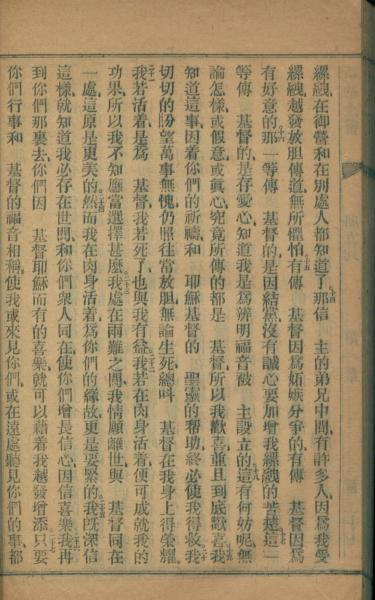 縲絏在御營和在別處人都知道了那信　主的弟兄中間有許多人因爲我受
縲絏越發放胆傳道無所懼怕有傳　基督因爲妬嫉分爭的有傳　基督因爲
有好意的那一等傳　基督的是因結黨沒有誠心要加增我縲絏的苦楚這一
等傳　基督的是存愛心知道我是爲辨明福音被　主設立的這有何妨呢無
論怎樣或假意或眞心究竟所傳的都是　基督所以我歡喜並且到底歡喜我
知道這事因着你們的祈禱和　耶穌基督的　聖靈的幇助終必使我得救我
切切的盼望萬事無愧仍照往常放胆無論生死總叫　基督在我身上得榮耀
我若活着是爲　基督我若死了也與我有益我若在肉身活着便可成就我的
功果所以我不知應當選擇甚麽我處在兩難之間我情願離世與　基督同在
一處這原是更美的然而我在肉身活着爲你們的緣故更是要緊的我旣深信
這樣就知道我必存在世間和你們衆人同在使你們增長信心因信喜樂我再
到你們那裏去你們因　基督耶穌而有的喜樂就可以藉着我越發增添只要
你們行事和　基督的福音相稱使我或來見你們或在遠處聽見你們的事都